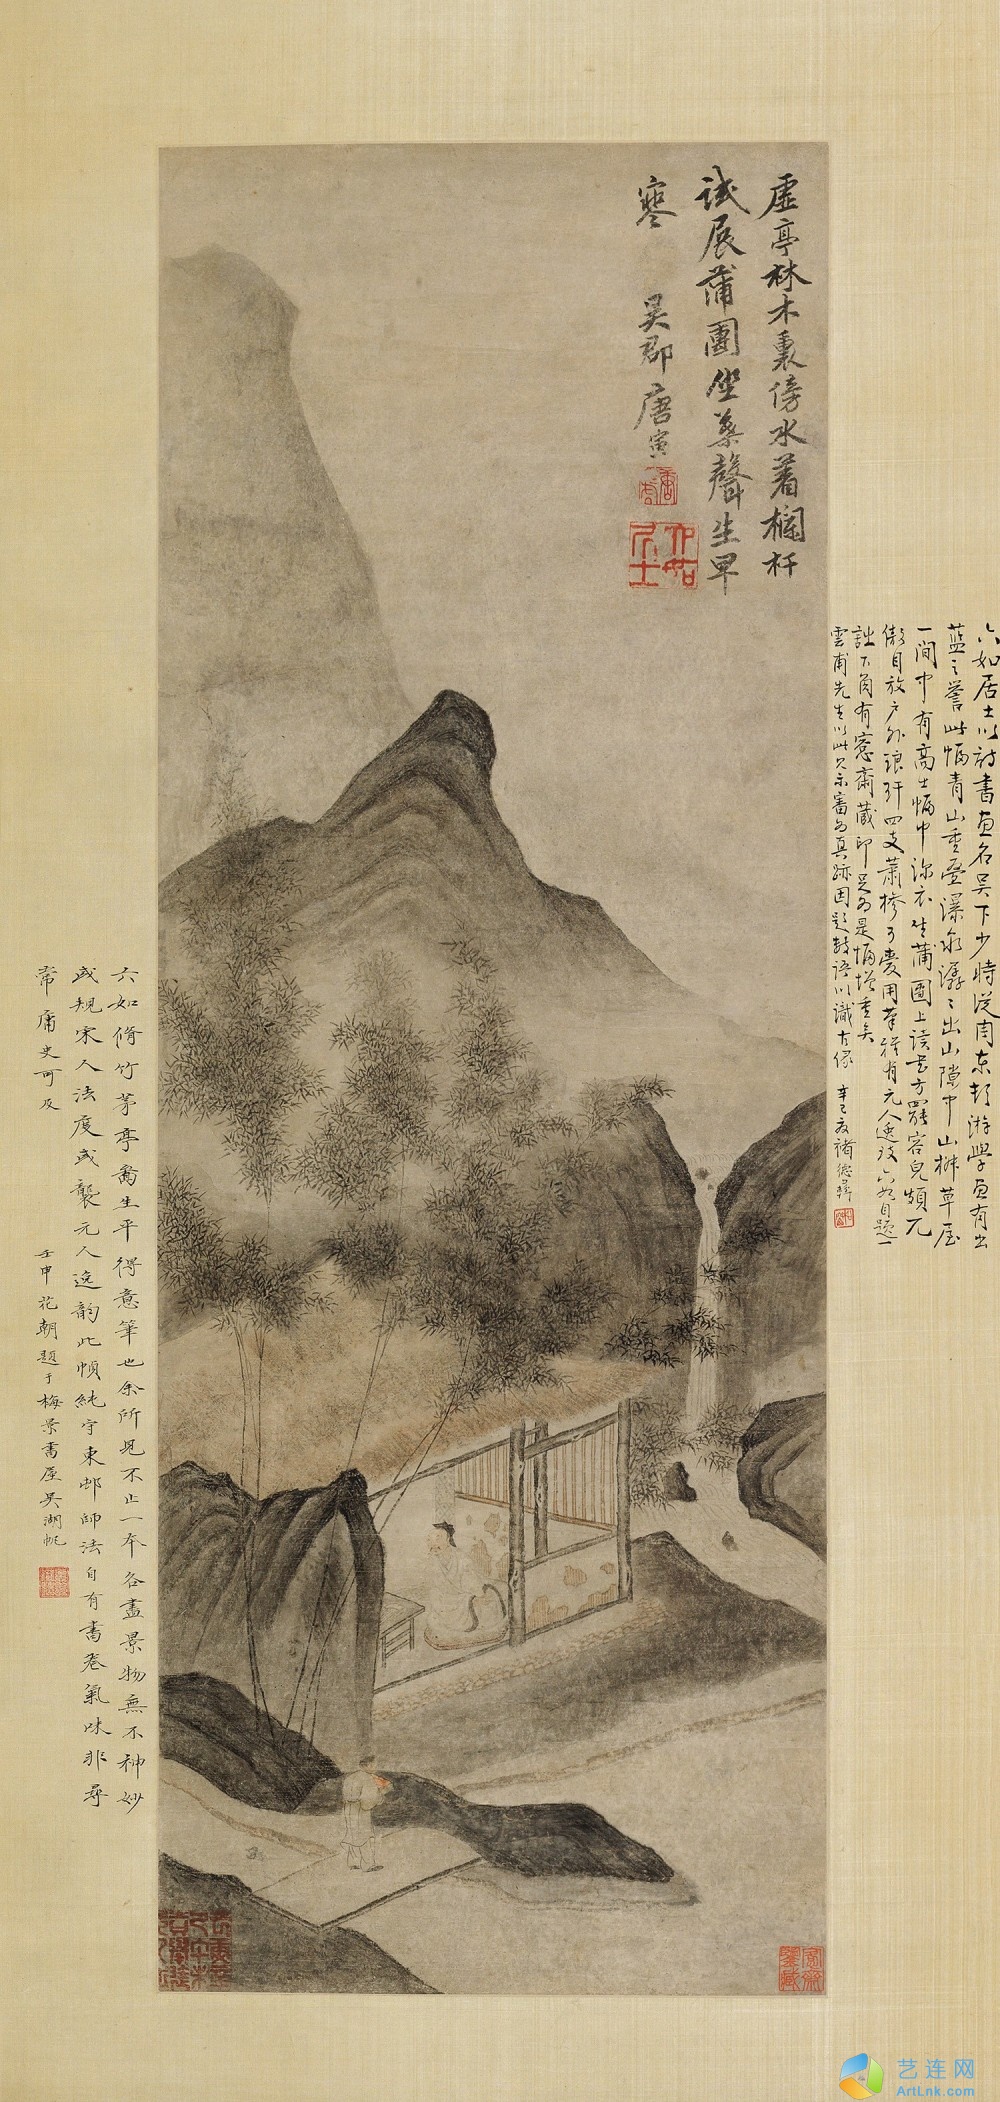 虛亭林木裏傍水着欄杆
試展蒲團坐葉聲生早
寒
吳郡唐寅
六如居士
六如居士以詩書畫名吳下少時從周東邨游學畫有出
藍之譽此幅青山重疊瀑泉潺潺出山隙中山榭草屋
一間中有高士幅巾深衣坐蒲團上讀書方罷容皃頗兀
傲自放戶外琅玕四支蕭椮可愛用筆雅有元人逸致六如自題一
詩下角有愙齋藏印足為是幅增重矣
雲甫先生以此見示審為真跡因題數語以識古緣
辛巳夏褚德彝
六如脩竹茅亭為生平得意筆也余所見不止一本各畫景物無不神妙
或規宋人法度或襲元人逸韵此幀純守東邨師法自有書卷氣味非尋
常庸史可及
壬申花朝題于梅景書屋吳湖帆
愙齋鑒藏
艺连网
ArtLnk.com